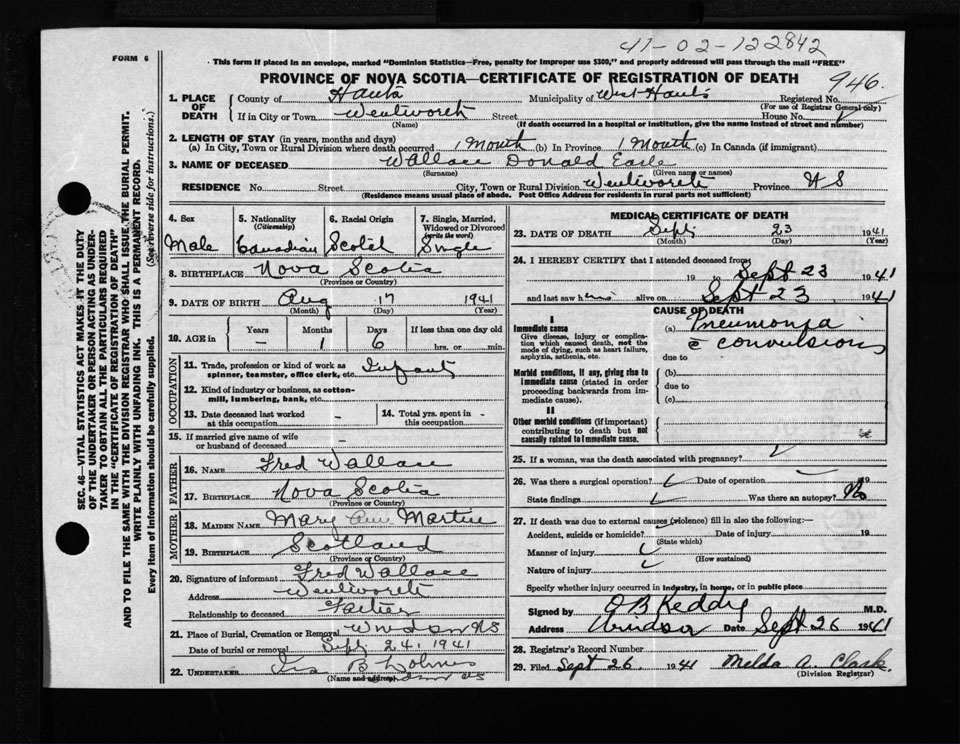 41-02-122842
FORM 6
This form if placed in an envelope, marked "Dominion Statistics—Free, penalty for improper use $300," and properly addressed will pass through the mail "FREE"
PROVINCE OF NOVA SCOTIA—CERTIFICATE OF REGISTRATION OF DEATH
946.
1. PLACE OF DEATH
County of Hants Municipality of West Hants Registered No.
(For use of Registrar General only)
If in City or Town Wentworth Street House No.
(Name) (If death occurred in a hospital or institution, give the name instead of street and number)
2. LENGTH OF STAY (in years, months and days)
(a) In City, Town or Rural Division where death occurred 1 Month (b) In Province 1 Month (c) In Canada (if immigrant)
3. NAME OF DECEASED Wallace Donald Earle
(Surname) (Given name or names)
RESIDENCE No. Street City, Town or Rural Division Wentworth Province N S
(Residence means usual place of abode. Post Office Address for residents in rural parts not sufficient)
4. Sex
Male
5. Nationality
(Citizenship)
Canadian
6. Racial Origin
Scotch
7. Single, Married, Widowed or Divorced
(write the word)
Single
8. BIRTHPLACE Nova Scotia
(Province or Country)
9. DATE OF BIRTH Aug 17 1941
(Month) (Day) (Year)
10. AGE in
Years Months Days If less than one day old
– 1 6 hrs. or min.
OCCUPATION
11. Trade, profession or kind of work as spinner, teamster, office clerk, etc. Infant
12. Kind of industry or business, as cotton-mill, lumbering, bank, etc.
13. Date deceased last worked at this occupation -
14. Total yrs. spent in this occupation -
15. If married give name of wife or husband of deceased -
FATHER
16. NAME Fred Wallace
17. BIRTHPLACE Nova Scotia
(Province or Country)
MOTHER
18. MAIDEN NAME Mary Ann Martin
19. BIRTHPLACE Scotland
(Province or Country)
20. Signature of informant Fred Wallace
Address Wentworth
Relationship to deceased Father
21. Place of Burial, Cremation or Removal Windsor NS
Date of burial or removal Sept 24 1941
22. UNDERTAKER Ira B Holmes
(Name and address) Windsor NS
MEDICAL CERTIFICATE OF DEATH
23. DATE OF DEATH Sept 23 1941
(Month) (Day) (Year)
24. I HEREBY CERTIFY that I attended deceased from
19 to Sept 23 1941
and last saw him alive on Sept 23, 1941
CAUSE OF DEATH
I
Immediate cause
Give disease, injury or complication which caused death, not the mode of dying, such as heart failure, asphyxia, asthenia, etc.
(a) Pneumonia
c convulsions
due to
Morbid conditions, if any, giving rise to immediate cause (stated in order proceeding backwards from immediate cause).
(b)
due to
(c)
II
Other morbid conditions (if important) contributing to death but not causally related to immediate cause.
25. If a woman, was the death associated with pregnancy?
26. Was there a surgical operation? Date of operation 19
State findings Was there an autopsy? No
27. If death was due to external causes (violence) fill in also the following:—
Accident, suicide or homicide? Date of injury 19
(State which)
Manner of injury
(How sustained)
Nature of injury
Specify whether injury occurred in industry, in home, or in public place
Signed by O B Keddy M.D.
Address Windsor Date Sept 26 1941
28. Registrar's Record Number
29. Filed Sept 26. 1941 Melda A. Clark.
(Division Registrar)
SEC. 46—VITAL STATISTICS ACT MAKES IT THE DUTY
OF THE UNDERTAKER OR PERSON ACTING AS UNDER-
TAKER TO OBTAIN ALL THE PARTICULARS REQUIRED
IN THE "CERTIFICATE OF REGISTRATION OF DEATH"
AND TO FILE THE SAME WITH THE DIVISION REGISTRAR WHO SHALL ISSUE THE BURIAL PERMIT.
WRITE PLAINLY WITH UNFADING INK. THIS IS A PERMANENT RECORD.
Every item of information should be carefully supplied. (See reverse side for instructions.)